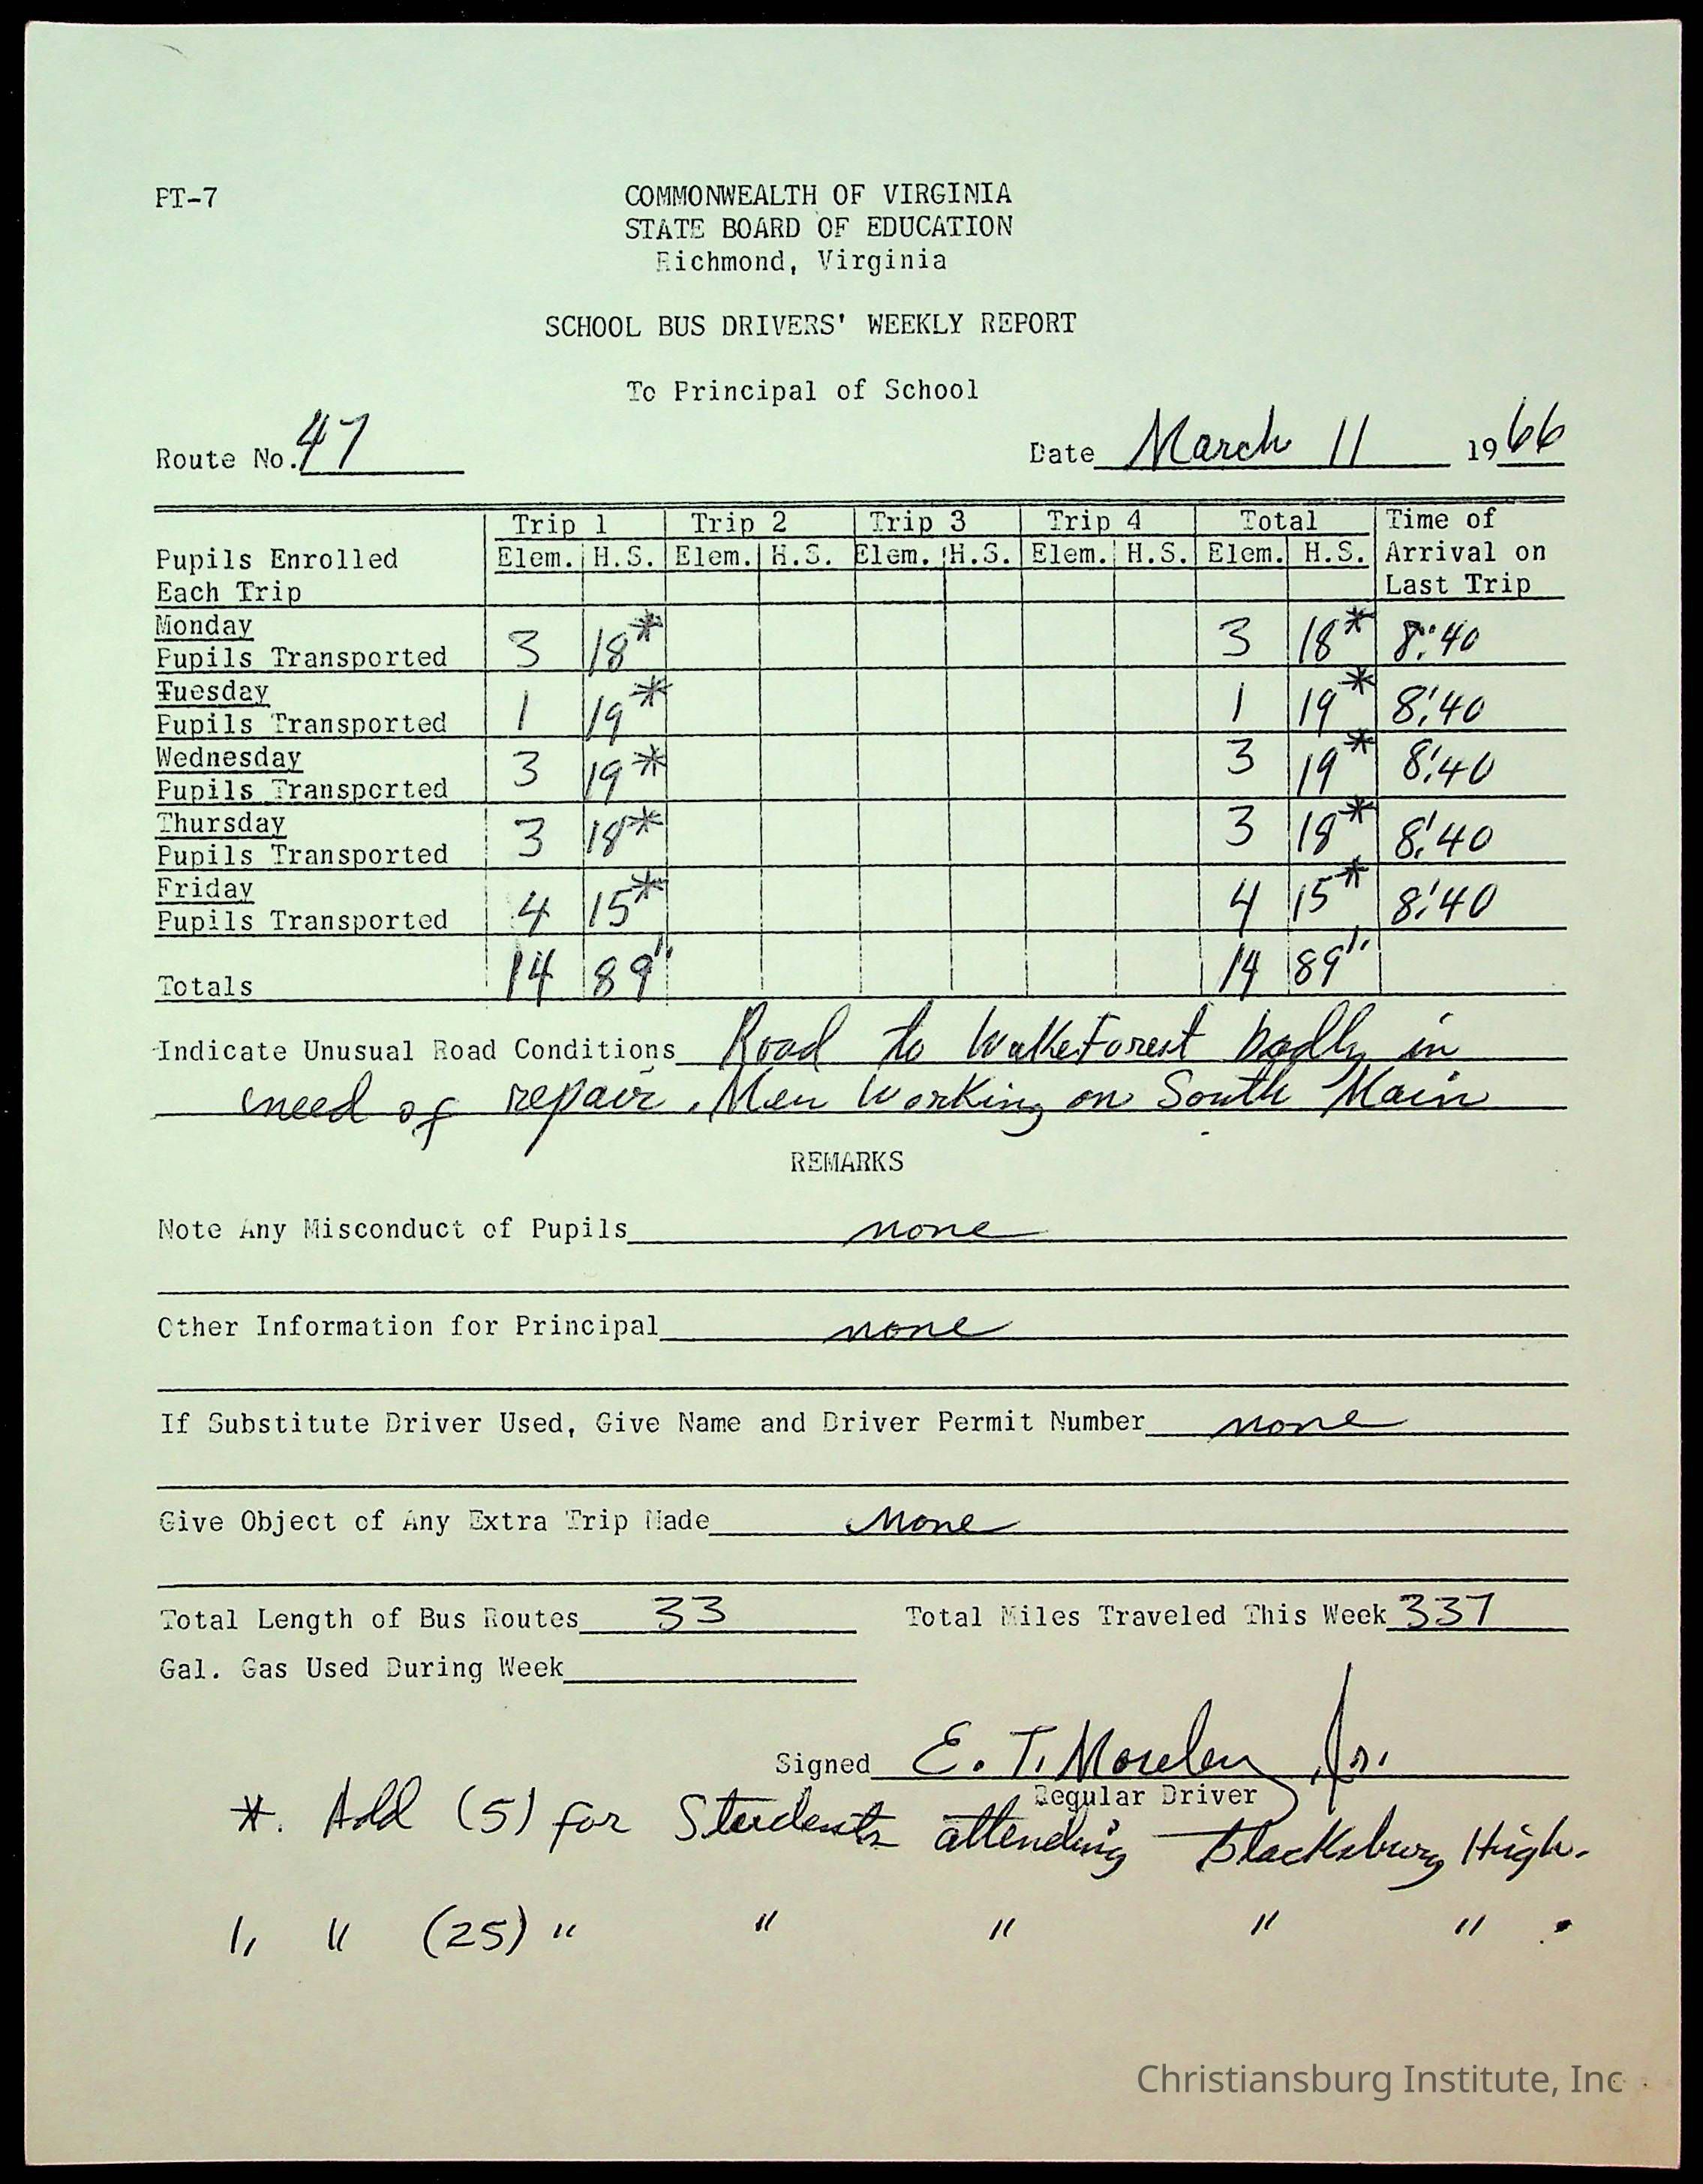 PT-7
COMMONWEALTH OF VIRGINIA
STATE BOARD OF EDUCATION
Richmond, Virginia
SCHOOL BUS DRIVERS' WEEKLY REPORT
To Principal of School
Route No. 47 Date March 11 1966
Trip 1 Trip 2 Trip 3 Trip 4 Total Time of
Pupils Enrolled Elem. H.S. Elem. H.S. Elem. H.S. Elem. H.S. Elem. H.S. Arrival on
Each Trip Last Trip
Monday
Pupils Transported 3 18* 3 18* 8:40
Tuesday
Pupils Transported 1 19* 1 19* 8:40
Wednesday
Pupils Transported 3 19* 3 19* 8:40
Thursday
Pupils Transported 3 18* 3 18* 8:40
Friday
Pupils Transported 4 15* 4 15* 8:40
Totals 14 89" 14 89"
Indicate Unusual Road Conditions Road to WakeForest badly in
need of repair. Men Working on South Main
REMARKS
Note Any Misconduct of Pupils none
Other Information for Principal none
If Substitute Driver Used, Give Name and Driver Permit Number none
Give Object of Any Extra Trip Made None
Total Length of Bus Routes 33 Total Miles Traveled This Week 337
Gal. Gas Used During Week
Signed E. T. Moseley, Jr.
Regular Driver
*. Add (5) for Students attending Blacksburg High.
" " (25) " " " " " .
Christiansburg Institute, Inc